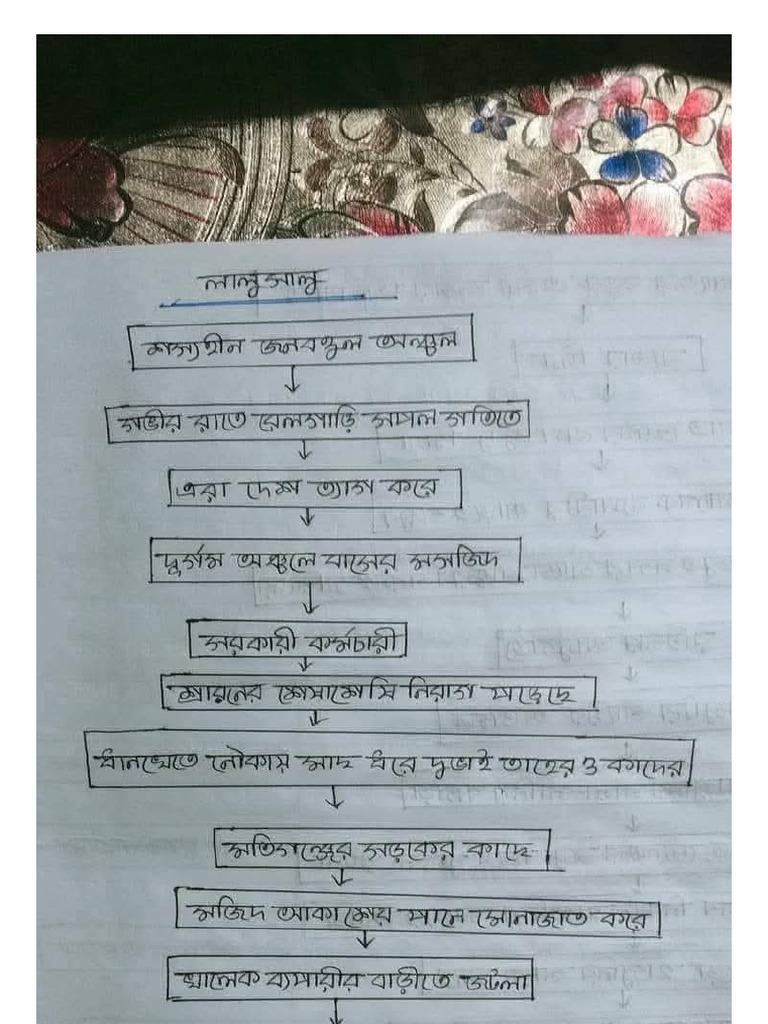 লালুসালু
শস্যহীন জনবহুল অঞ্চল
গভীর রাতে রেলগাড়ি সাপল গতিতে
এরা দেশ ত্যাগ করে
দুর্গম অঞ্চলে বাসের মসজিদ
সরকারী কর্মচারী
শ্রাবনের শেষাশেষি নিরাগ পড়েছে
ধানখেতে নৌকায় মাছ ধরে দুভাই তাহের ও কাদের
মতিগঞ্জের সড়কের কাছে
মজিদ আকাশের পানে মোনাজাত করে
খালেক ব্যপারীর বাড়ীতে জটলা